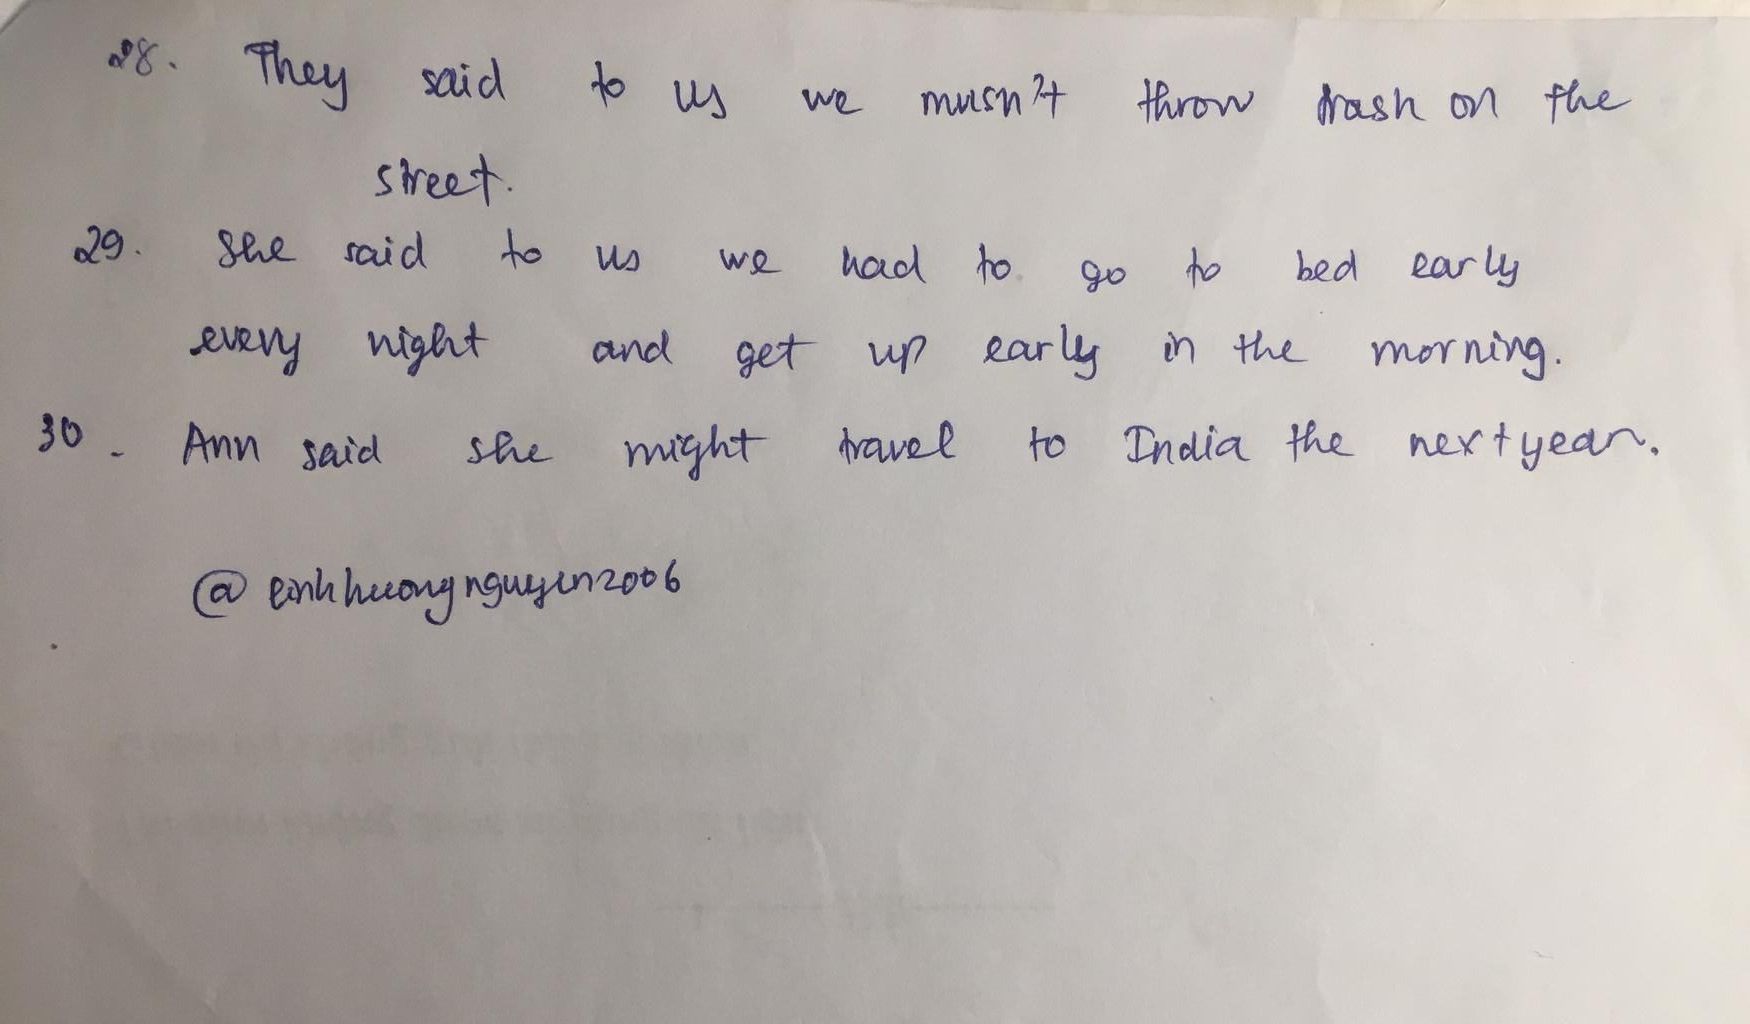 28. They said to us we musn't throw trash on the
street.
29. She said to us we had to go to bed early
every night and get up early in the morning.
30. Ann said she might travel to India the next year.
@linhhuongnguyen2006